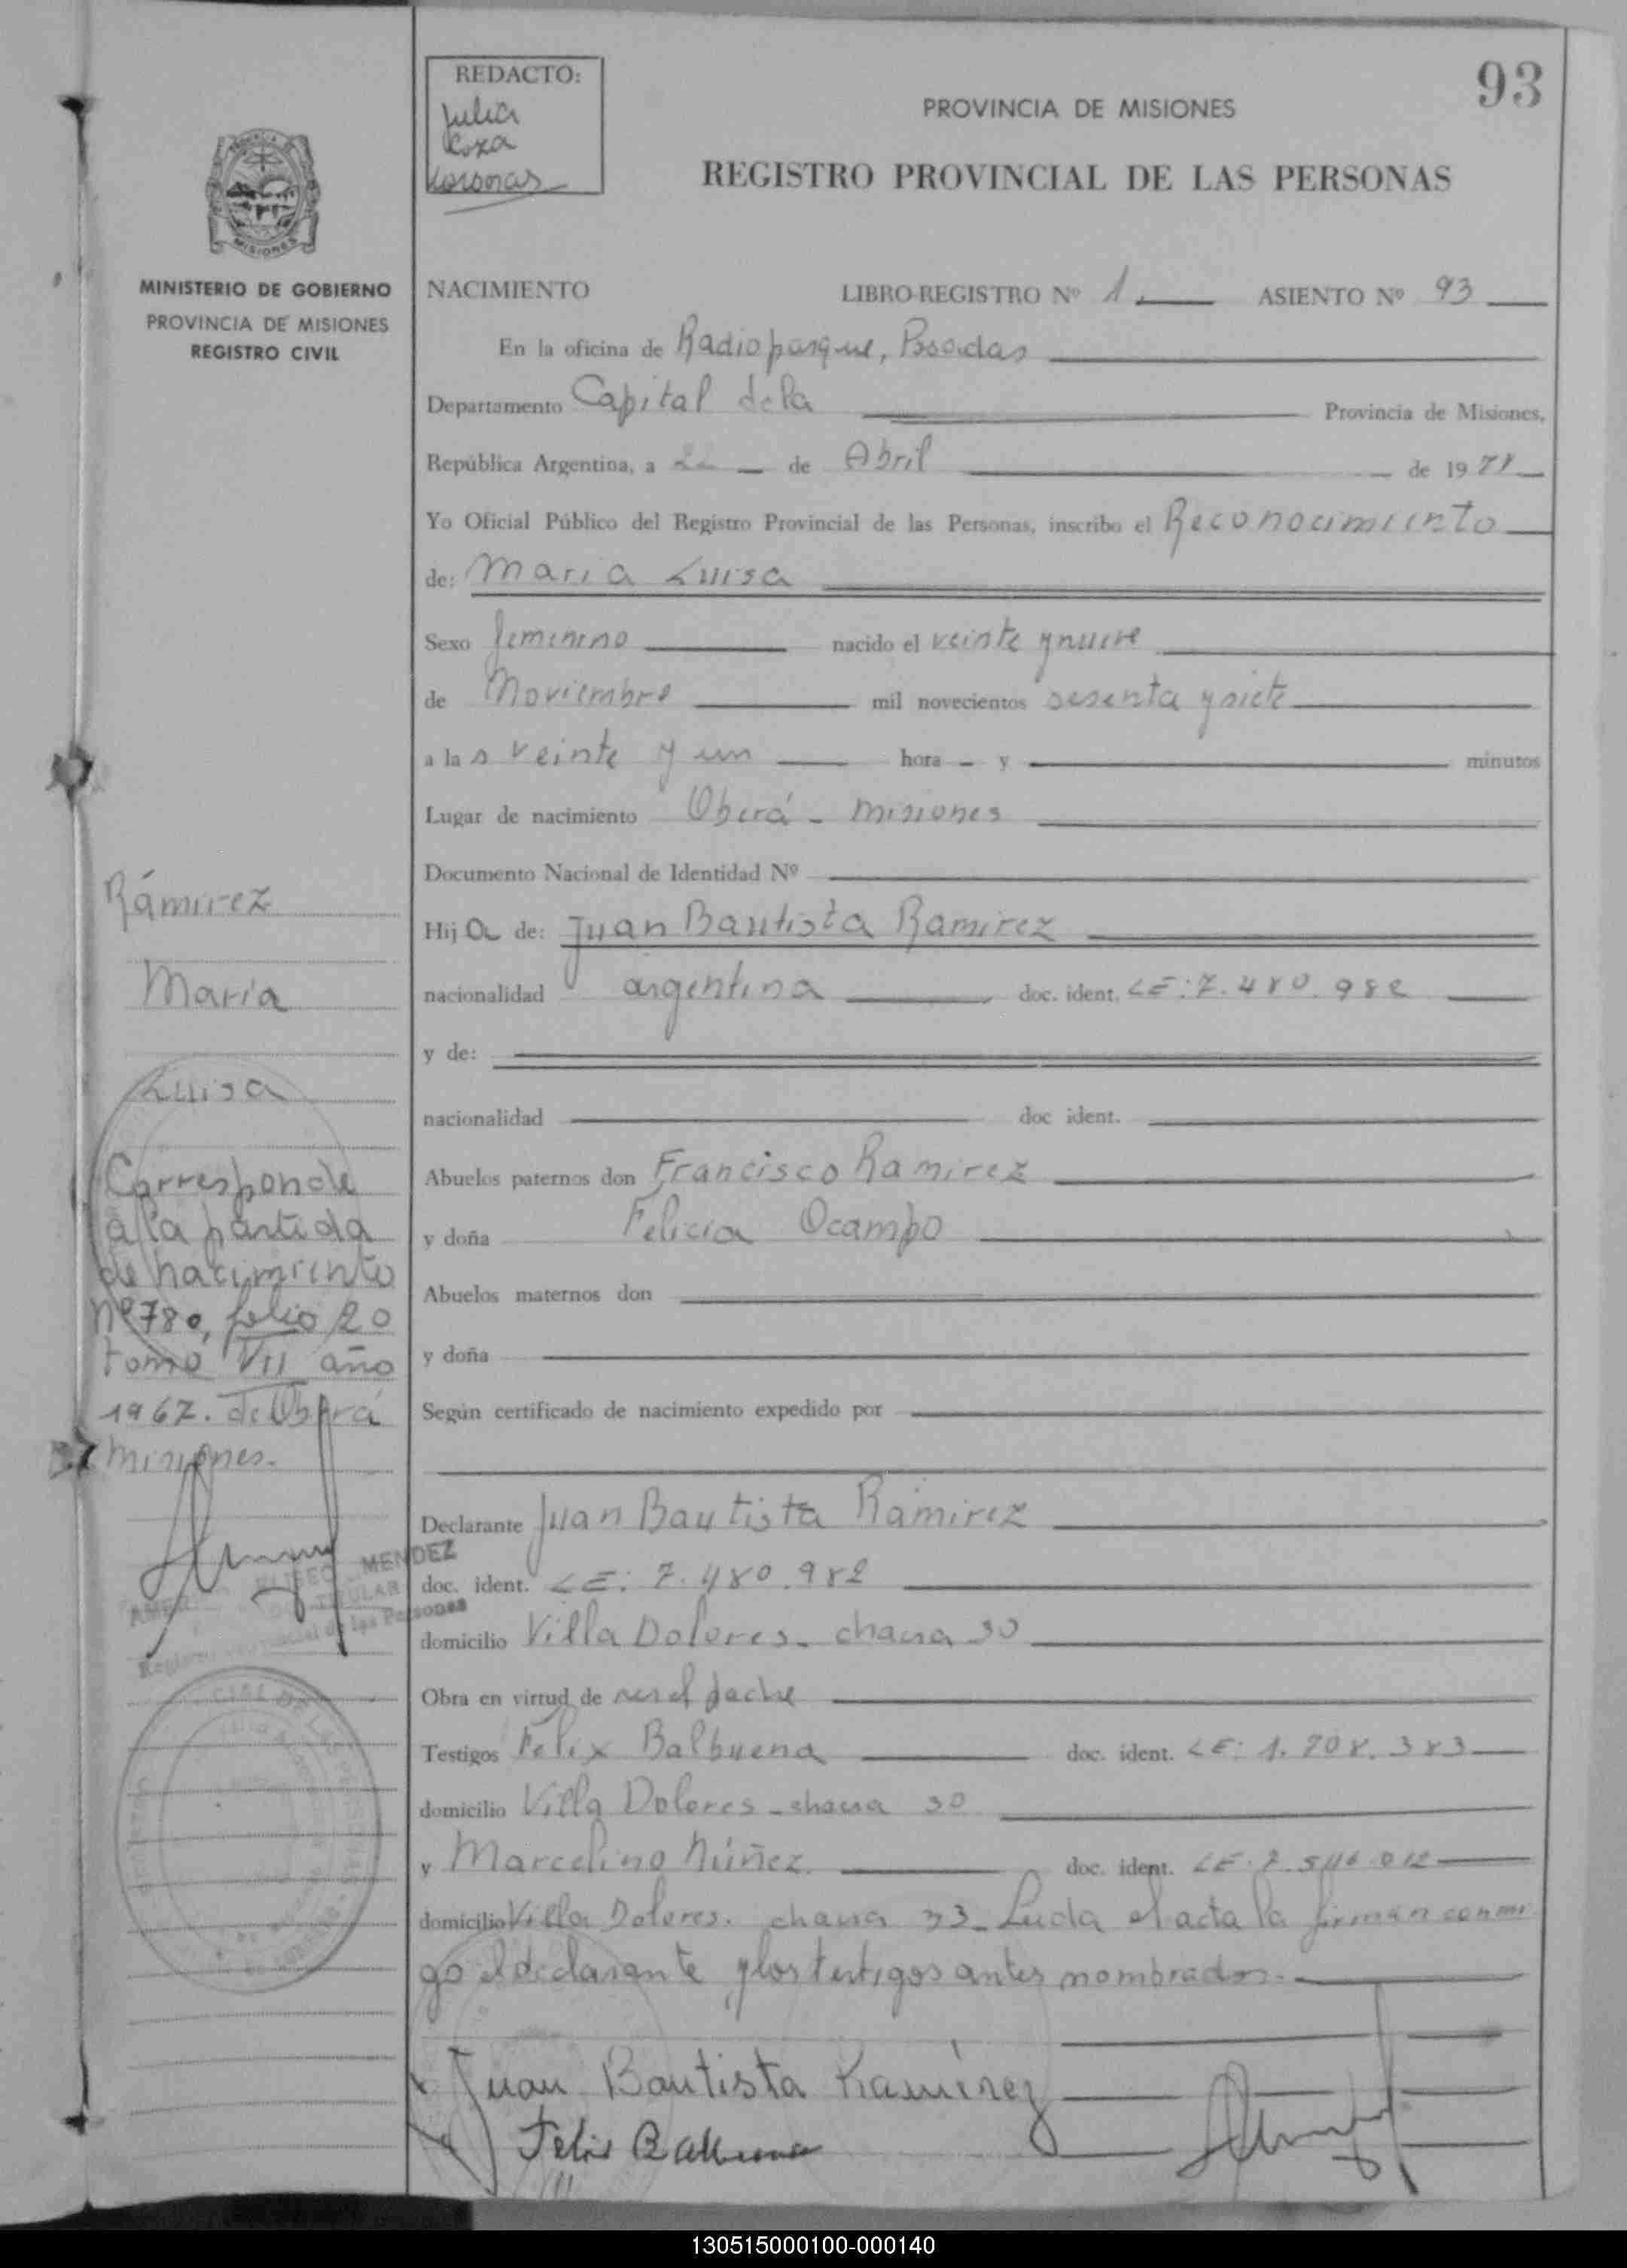 REDACTO:
Julia
Roxa
93
PROVINCIA DE MISIONES
REGISTRO PROVINCIAL DE LAS PERSONAS
MISIONES
MINISTERIO DE GOBIERNO
PROVINCIA DE MISIONES
REGISTRO CIVIL
NACIMIENTO LIBRO-REGISTRO Nº 1 ASIENTO Nº 93
En la oficina de Radioparque, Posadas
Departamento Capital de la Provincia de Misiones,
República Argentina, a de Abril de 1971
Yo Oficial Público del Registro Provincial de las Personas, inscribo el Reconocimiento
de: Maria Luisa
Sexo femenino nacido el veinte y nueve
de Noviembre mil novecientos sesenta y siete
a las veinte y un hora - y minutos
Lugar de nacimiento Oberá - Misiones
Documento Nacional de Identidad Nº
Hija de: Juan Bautista Ramirez
nacionalidad argentina doc. ident. LE: 7.480.982
y de:
nacionalidad doc ident.
Abuelos paternos don Francisco Ramirez
y doña Felicia Ocampo
Abuelos maternos don
y doña
Según certificado de nacimiento expedido por
Declarante Juan Bautista Ramirez
doc. ident. LE: 7.480.982
domicilio Villa Dolores - chacra 30
Obra en virtud de ser el padre
Testigos Felix Balbuena doc. ident. LE: 1.708.383
domicilio Villa Dolores - chacra 30
y Marcelino Núñez doc. ident. LE 7.546.012
domicilio Villa Dolores. chacra 33 - Leida el acta la firman conmi
go el declarante y los testigos antes nombrados.-
Juan Bautista Ramirez
Felis Balbuena
Rámirez
María
Luisa
Corresponde
a la partida
de nacimiento
nº 780, folio 20
tomo VII año
1967. de Oberá
Misiones.-
ELISEO MENDEZ
TITULAR
de las Personas
130515000100-000140